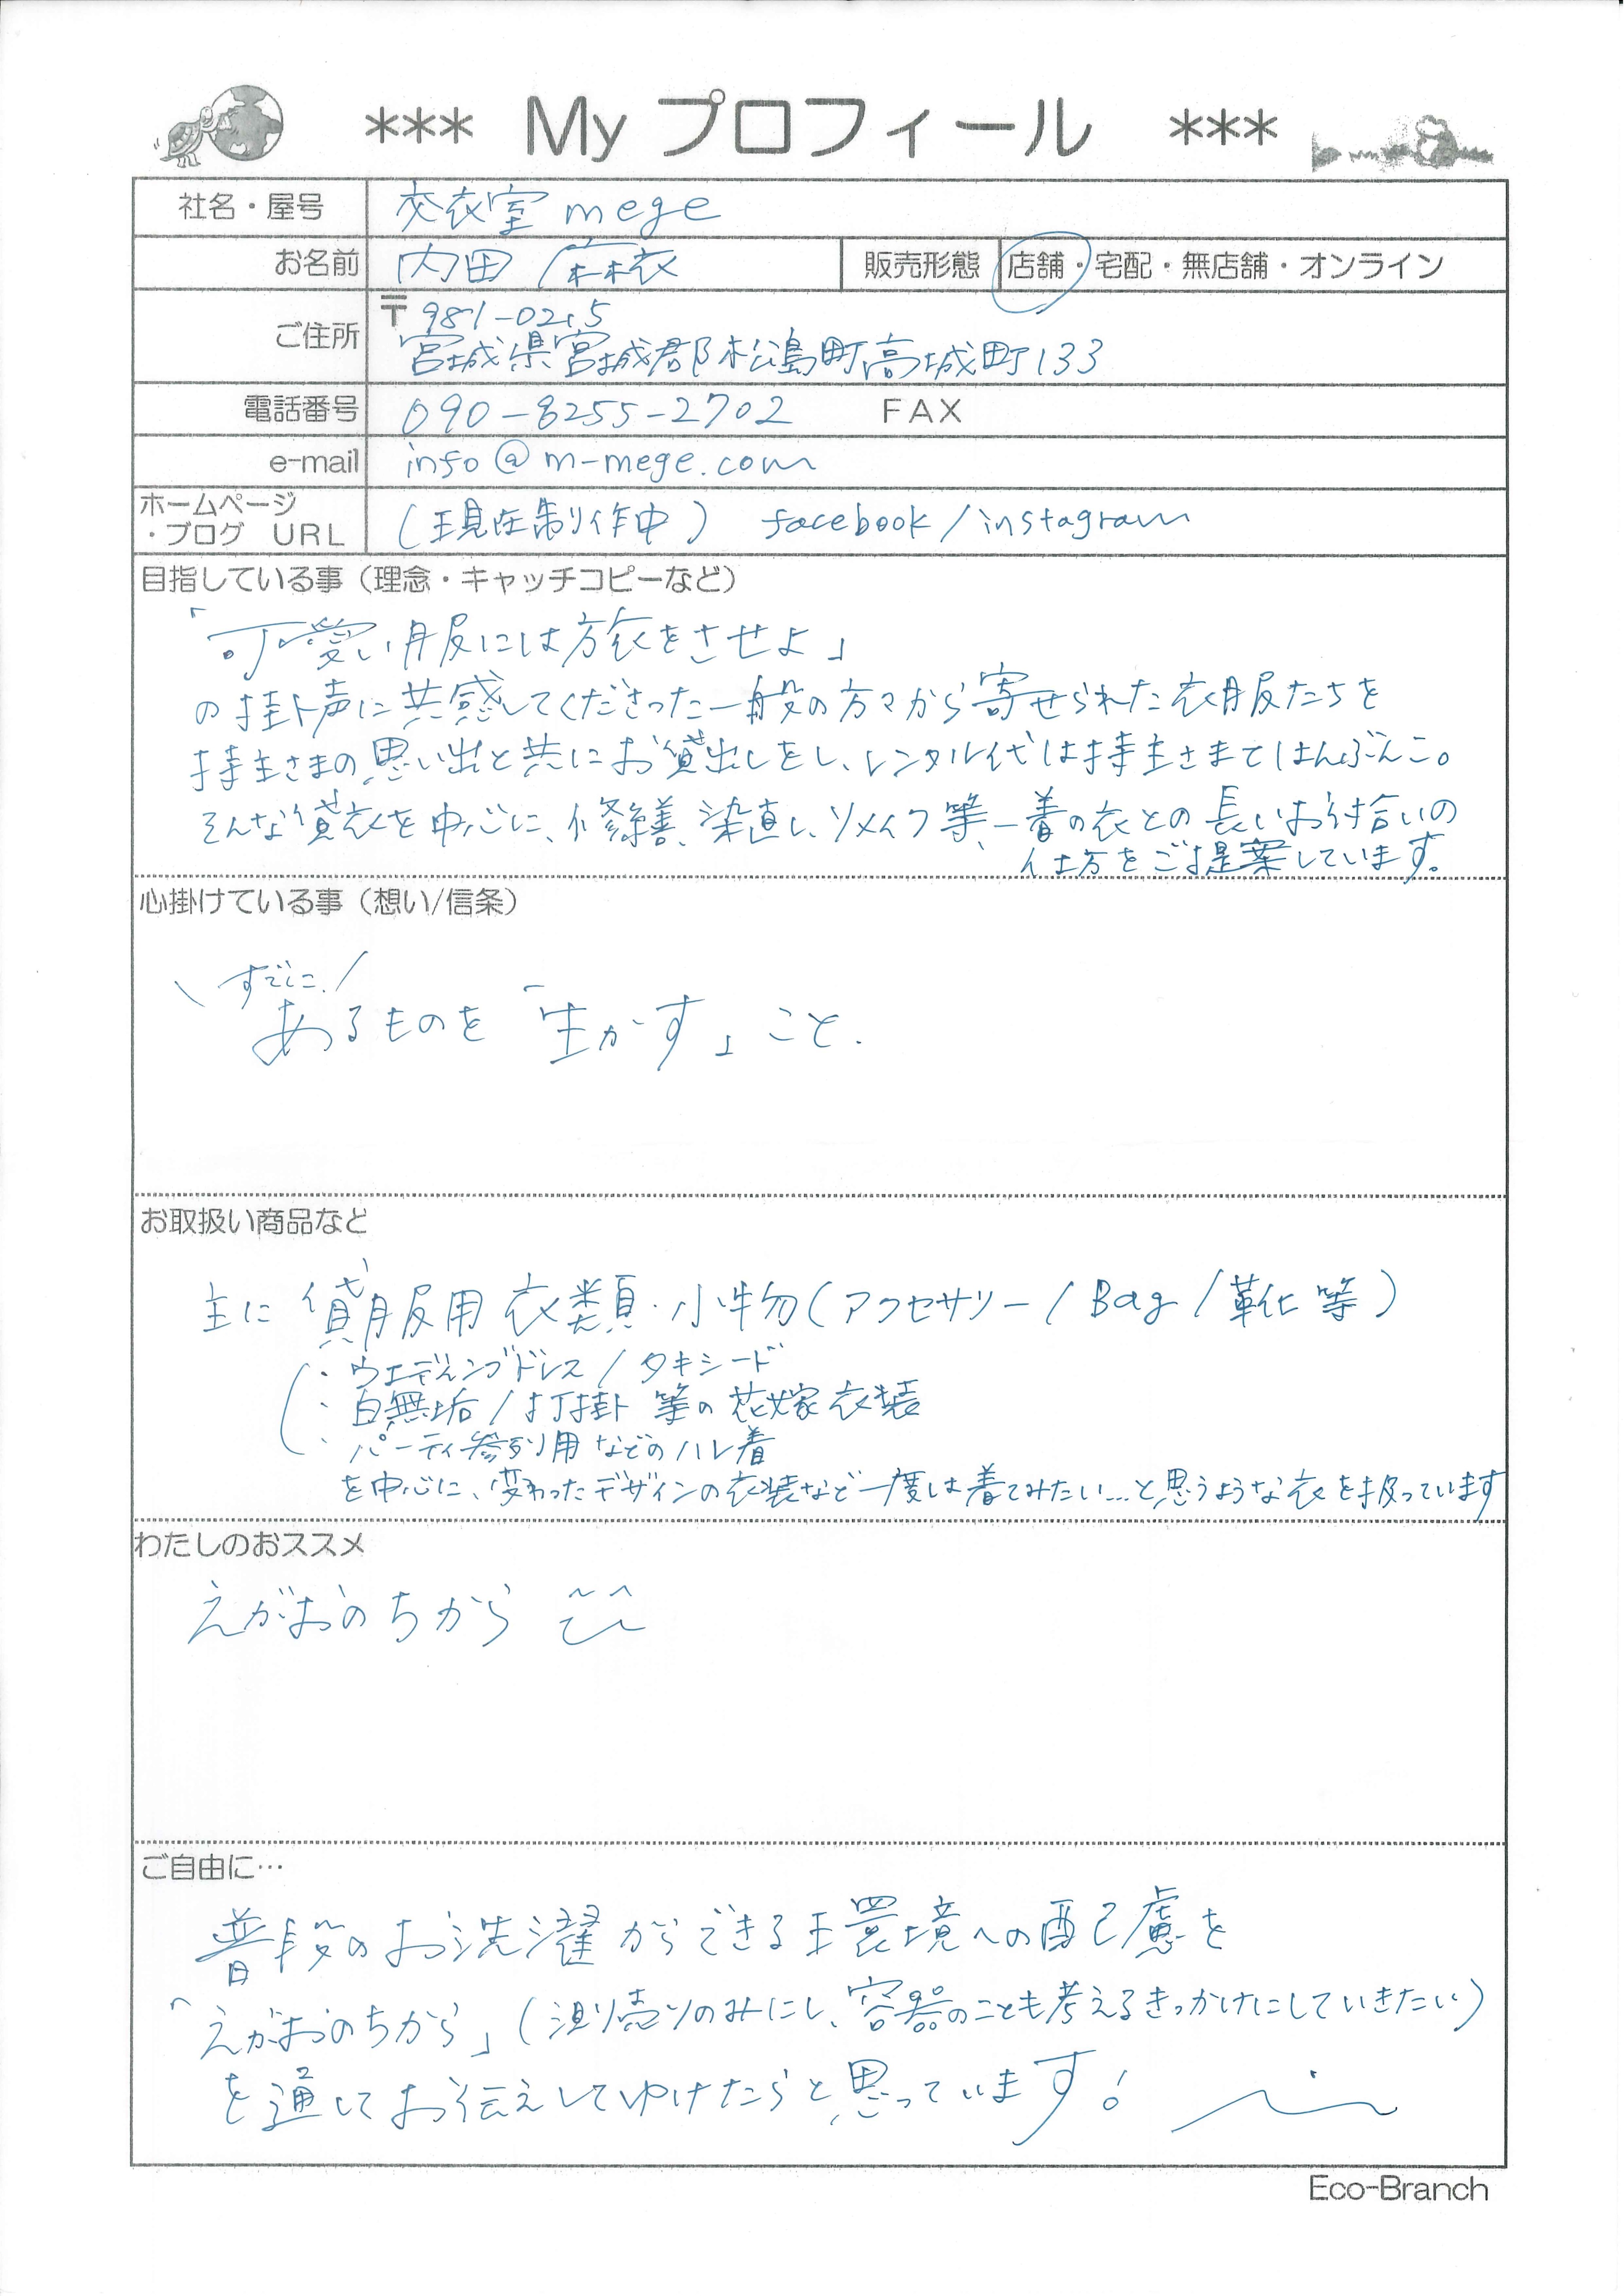 *** My プロフィール ***
社名・屋号 交衣室 mege
お名前 内田 麻衣 販売形態 店舗・宅配・無店舗・オンライン
ご住所 〒981-0215
宮城県宮城郡松島町高城町133
電話番号 090-8255-2702 FAX
e-mail info@m-mege.com
ホームページ
・ブログ URL (現在制作中) facebook/instagram
目指している事(理念・キャッチコピーなど)
「可愛い服には旅をさせよ」
の掛声に共感してくださった一般の方々から寄せられた衣服たちを
持主さまの思い出と共にお貸出しをし、レンタル代は持主さまとはんぶんこ。
そんな貸衣を中心に、修繕、染直し、リメイク等、一着の衣との長いお付合いの
仕方をご提案しています。
心掛けている事(想い/信条)
\すでに!/
あるものを「生かす」こと.
お取扱い商品など
主に 貸服用 衣類・小物(アクセサリー/Bag/靴 等)
・ウエディングドレス/タキシード
・白無垢/打掛 等の花嫁衣装
・パーティ参列用などのハレ着
を中心に、変わったデザインの衣装など一度は着てみたい…と思うような衣を扱っています
わたしのおススメ
えがおのちから
ご自由に…
普段のお洗濯からできる環境への配慮を
「えがおのちから」(測り売りのみにし、容器のことも考えるきっかけにしていきたい)
を通してお伝えしてゆけたらと思っています!
Eco-Branch